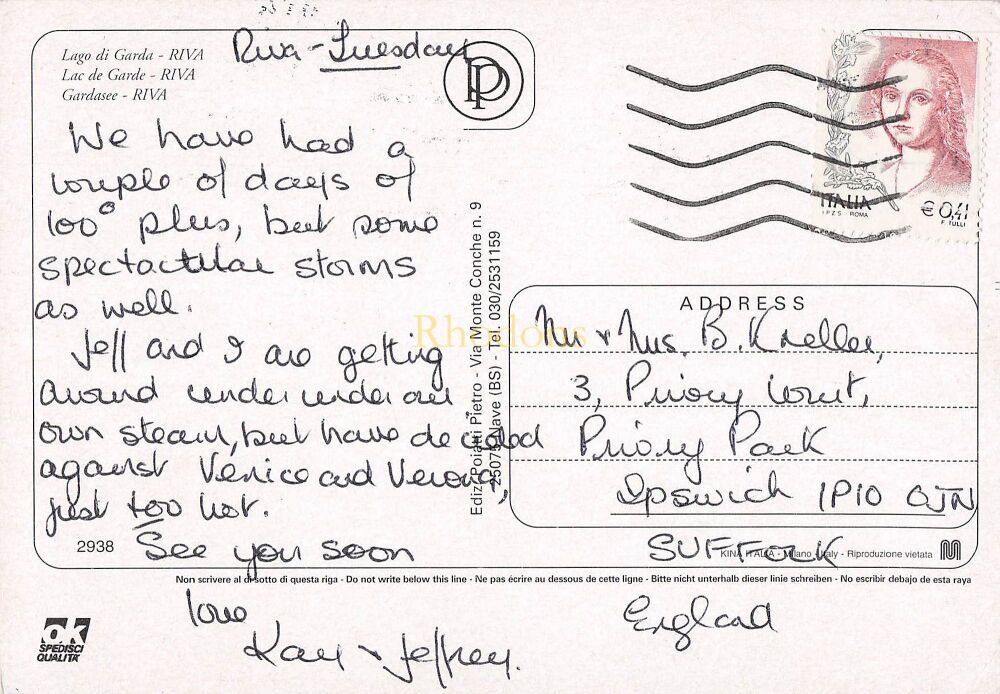 Lago di Garda - RIVA
Lac de Garde - RIVA
Gardasee - RIVA
Riva - Tuesday
We have had a
couple of days of
100° plus, but some
spectactular storms
as well.
Jeff and I are getting
around under under our
own steam, but have decided
against Venice and Verona,
just too hot.
See you soon
love
Kay & Jeffrey.
2938
OK
SPEDISCI
QUALITA'
Ediz. Poiatti Pietro - Via Monte Conche n. 9
25075 Nave (BS) - Tel. 030/2531159
P
ITALIA
I.P.Z.S. ROMA
€ 0,41
F. TULLI
ADDRESS
Mr & Mrs. B. Kneller,
3, Priory Court,
Priory Park
Ipswich IP10 0JN
SUFFOLK
England
KINA ITALIA - Milano - Italy - Riproduzione vietata
Non scrivere al di sotto di questa riga - Do not write below this line - Ne pas écrire au dessous de cette ligne - Bitte nicht unterhalb dieser linie schreiben - No escribir debajo de esta raya
Rhodons